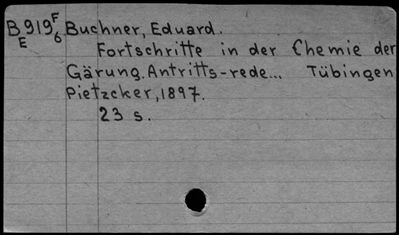 B919F6E Buchner, Eduard.
Fortschritte in der Chemie der
Gärung. Antritts-rede... Tübingen
Pietzcker, 1897.
23 s.